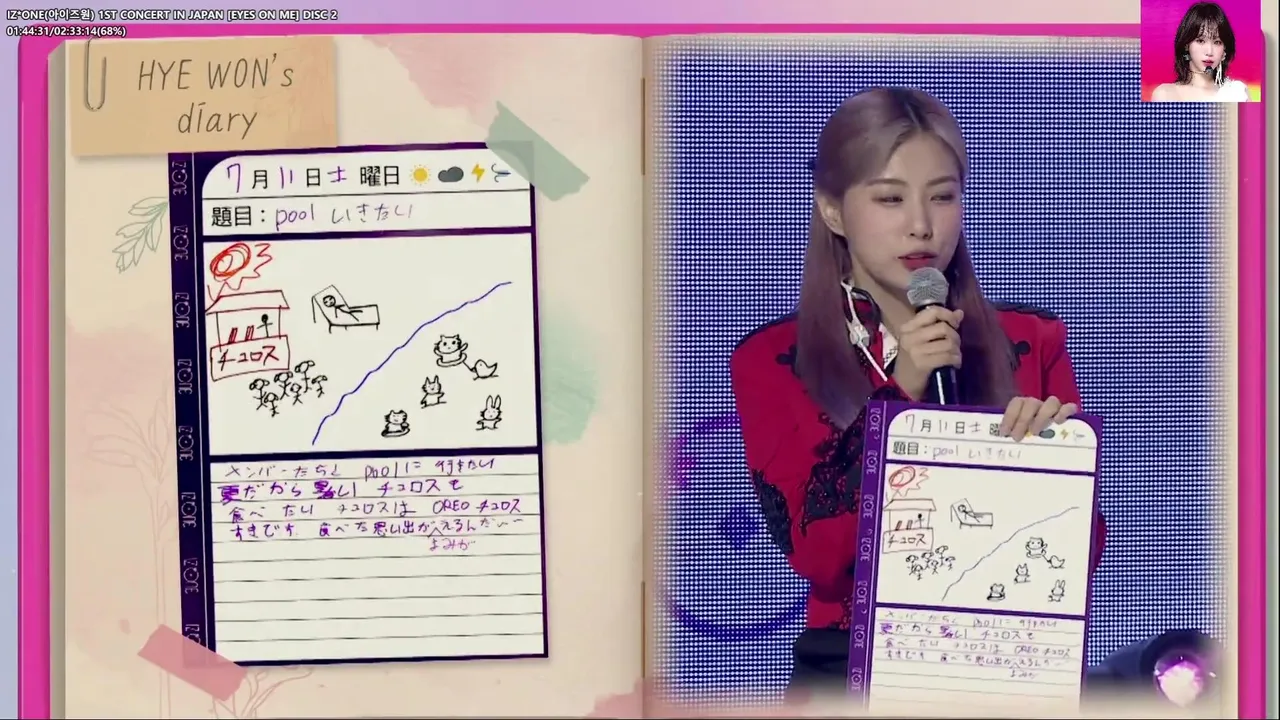 IZ*ONE(아이즈원) 1ST CONCERT IN JAPAN [EYES ON ME] DISC 2
01:44:31/02:33:14(68%)
HYE WON's
diary
7月11日土曜日
題目：pool いきたい
チュロス
メンバーたちと poolに 行きたい
夏だから 暑い チュロスを
食べたい チュロスは OREO チュロス
すきです. 食べた思い出が えるんだ~~
よみが
7月11日土曜
題目：pool いきたい
チュロス
メンバーたちと poolに 行きたい
夏だから 暑い チュロスを
食べたい チュロスは OREO チュロス
すきです. 食べた思い出が えるんだ~~
よみが